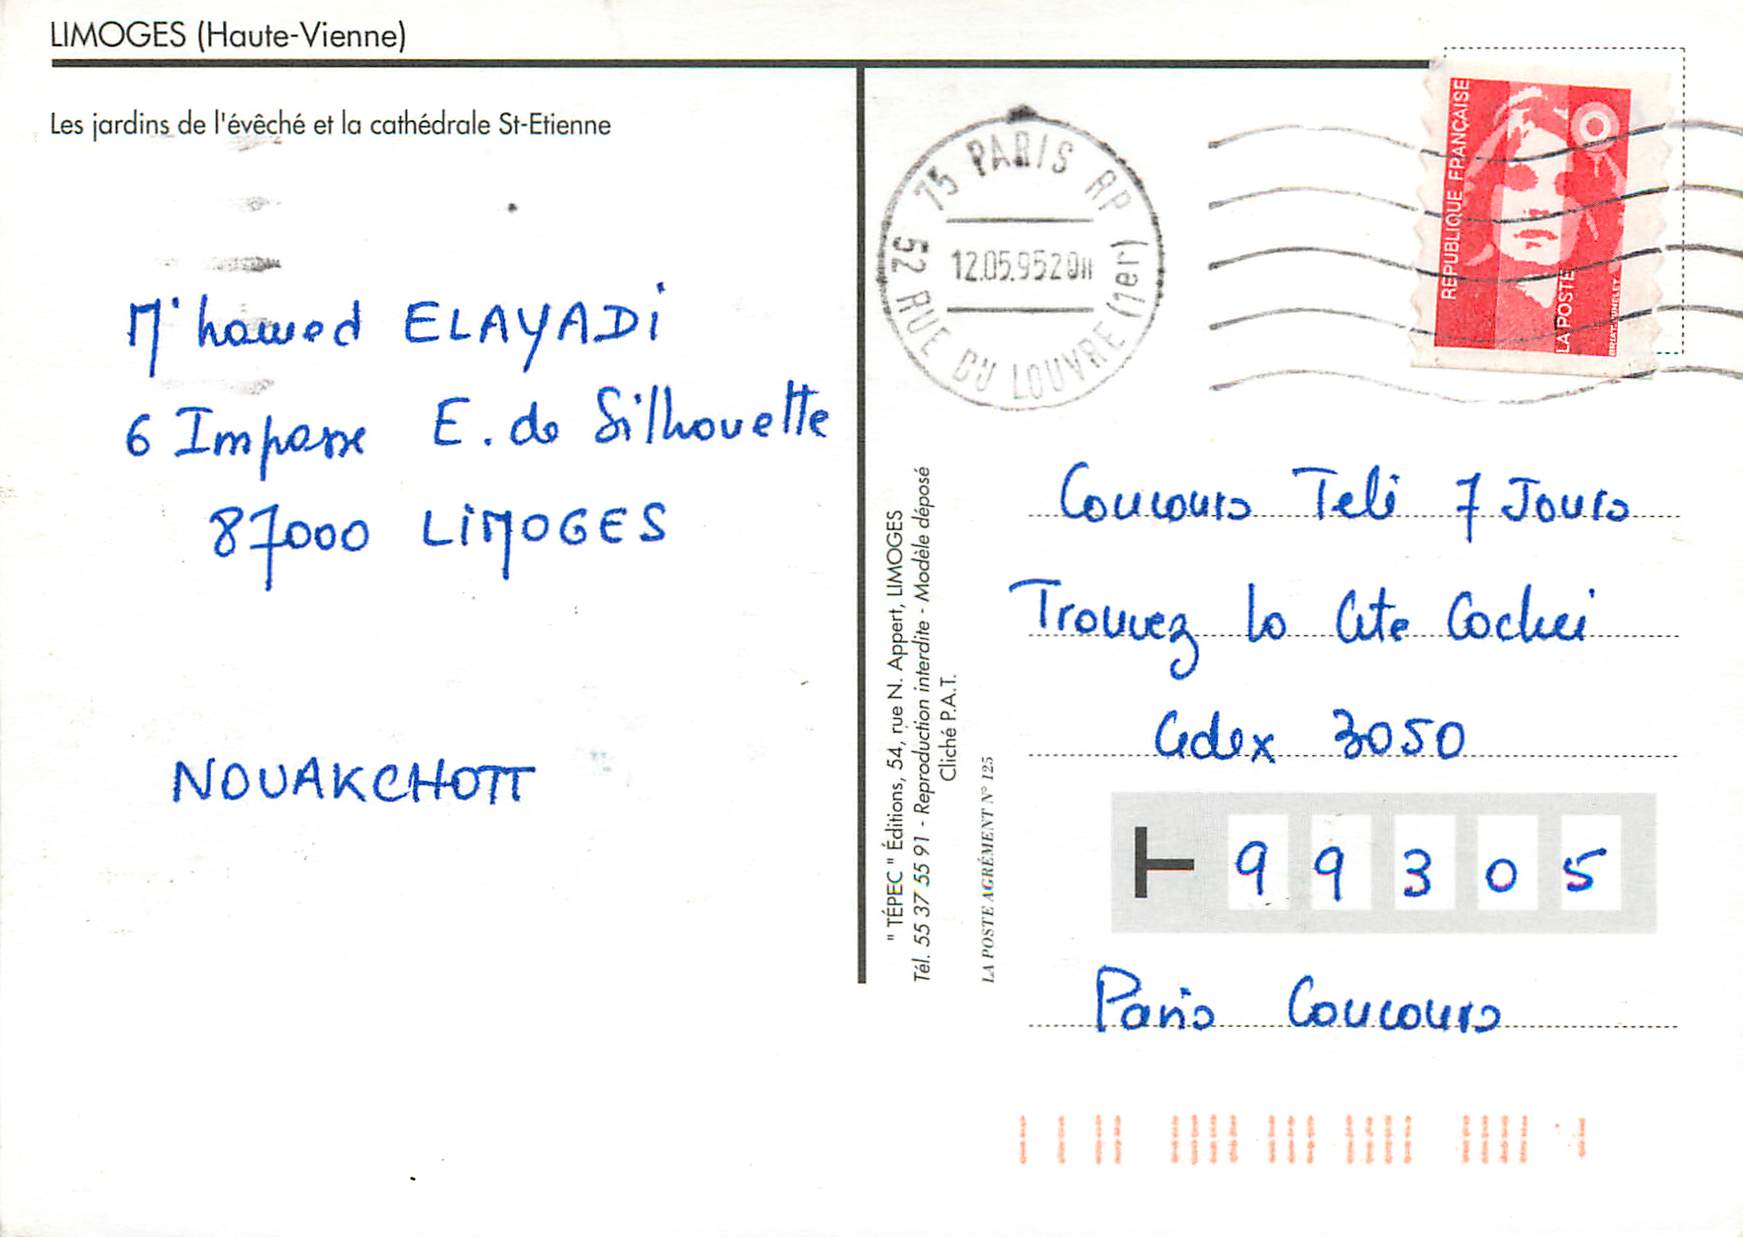 LIMOGES (Haute-Vienne)
Les jardins de l'évêché et la cathédrale St-Etienne
M'hamed ELAYADi
6 Impasse E. de Silhouette
87000 LiMOGES
NOUAKCHOTT
" TÉPEC " Éditions, 54, rue N. Appert, LIMOGES
Tél. 55 37 55 91 - Reproduction interdite - Modèle déposé
Cliché P.A.T.
LA POSTE AGRÉMENT N° 125
75 PARIS RP
12.05.95 20H
52 RUE DU LOUVRE (1er)
REPUBLIQUE FRANÇAISE
LA POSTE
Concours Télé 7 Jours
Trouvez la Cité Cachée
Cedex 3050
99305
Paris Concours